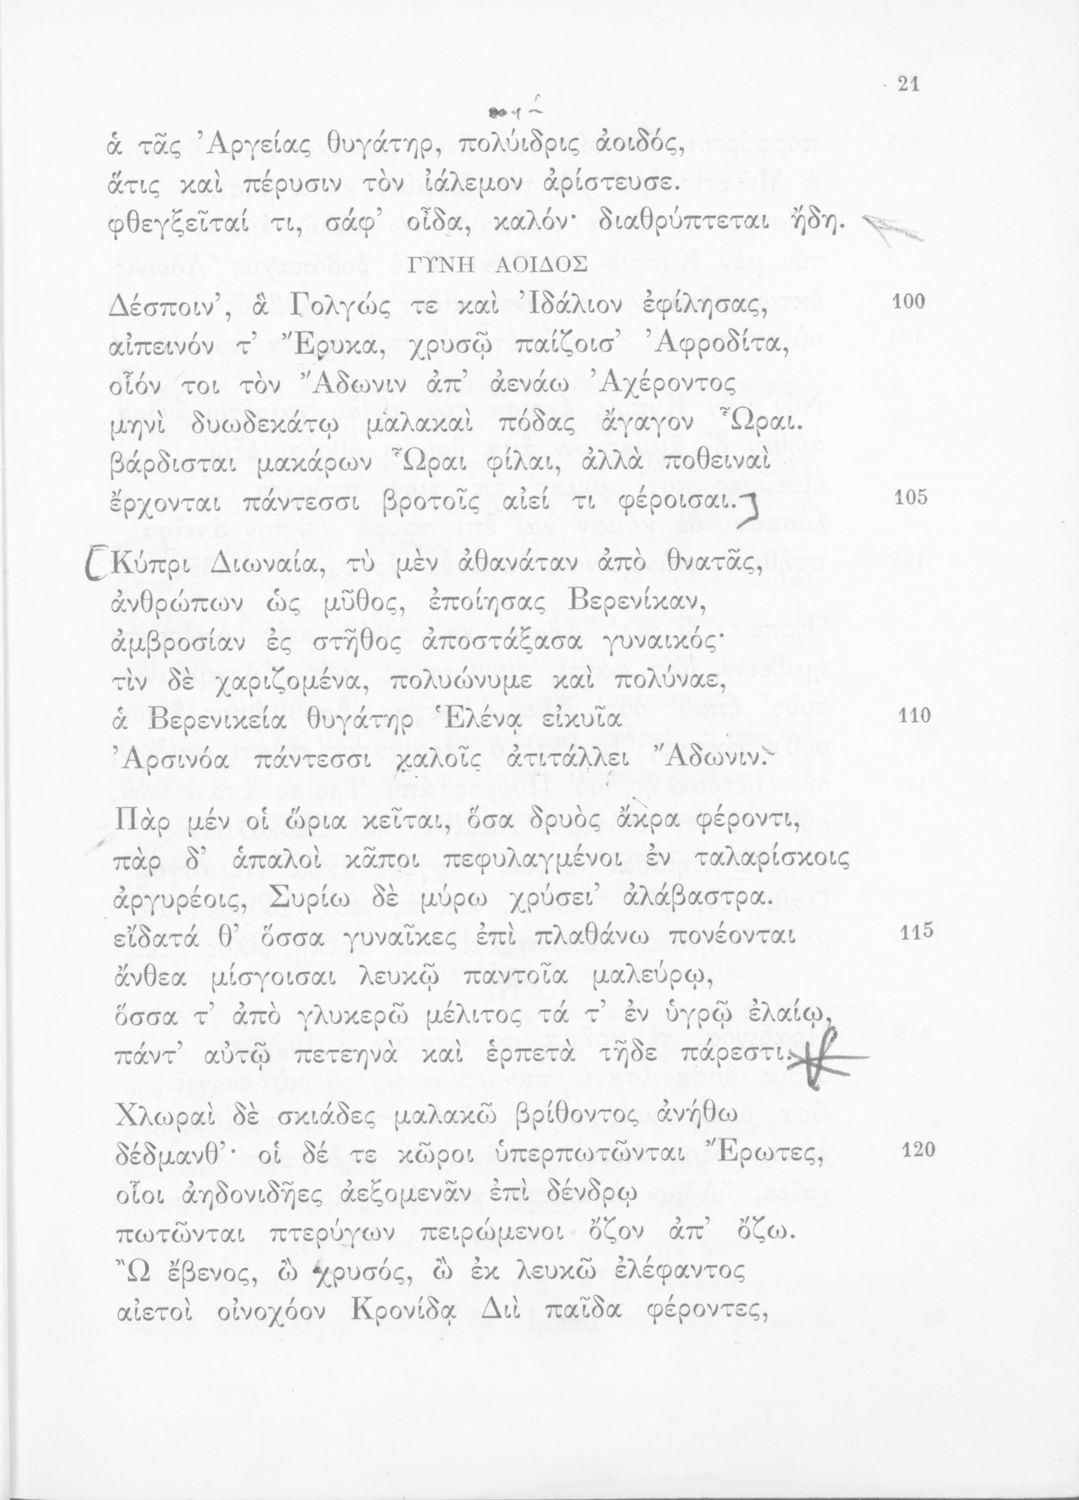 21
ἁ τᾶς Ἀργείας θυγάτηρ, πολύιδρις ἀοιδός,
ἅτις καὶ πέρυσιν τὸν ἰάλεμον ἀρίστευσε.
φθεγξεῖταί τι, σάφ’ οἶδα, καλόν· διαθρύπτεται ἤδη.
ΓΥΝΗ ΑΟΙΔΟΣ
Δέσποιν’, ἃ Γολγώς τε καὶ Ἰδάλιον ἐφίλησας, 100
αἰπεινόν τ’ Ἔρυκα, χρυσῷ παίζοισ’ Ἀφροδίτα,
οἷόν τοι τὸν Ἄδωνιν ἀπ’ ἀενάω Ἀχέροντος
μηνὶ δυωδεκάτῳ μαλακαὶ πόδας ἄγαγον Ὧραι.
βάρδισται μακάρων Ὧραι φίλαι, ἀλλὰ ποθειναὶ
ἔρχονται πάντεσσι βροτοῖς αἰεί τι φέροισαι. 105
Κύπρι Διωναία, τὺ μὲν ἀθανάταν ἀπὸ θνατᾶς,
ἀνθρώπων ὡς μῦθος, ἐποίησας Βερενίκαν,
ἀμβροσίαν ἐς στῆθος ἀποστάξασα γυναικός·
τὶν δὲ χαριζομένα, πολυώνυμε καὶ πολύναε,
ἁ Βερενικεία θυγάτηρ Ἑλένᾳ εἰκυῖα 110
Ἀρσινόα πάντεσσι καλοῖς ἀτιτάλλει Ἄδωνιν.
Πὰρ μέν οἱ ὥρια κεῖται, ὅσα δρυὸς ἄκρα φέροντι,
πὰρ δ’ ἁπαλοὶ κᾶποι πεφυλαγμένοι ἐν ταλαρίσκοις
ἀργυρέοις, Συρίω δὲ μύρω χρύσει’ ἀλάβαστρα.
εἴδατά θ’ ὅσσα γυναῖκες ἐπὶ πλαθάνω πονέονται 115
ἄνθεα μίσγοισαι λευκῷ παντοῖα μαλεύρῳ,
ὅσσα τ’ ἀπὸ γλυκερῶ μέλιτος τά τ’ ἐν ὑγρῷ ἐλαίῳ,
πάντ’ αὐτῷ πετεηνὰ καὶ ἑρπετὰ τῆδε πάρεστι.
Χλωραὶ δὲ σκιάδες μαλακῶ βρίθοντος ἀνήθω
δέδμανθ’· οἱ δέ τε κῶροι ὑπερπωτῶνται Ἔρωτες, 120
οἷοι ἀηδονιδῆες ἀεξομενᾶν ἐπὶ δένδρῳ
πωτῶνται πτερύγων πειρώμενοι ὄζον ἀπ’ ὄζω.
Ὢ ἔβενος, ὢ χρυσός, ὢ ἐκ λευκῶ ἐλέφαντος
αἰετοὶ οἰνοχόον Κρονίδᾳ Διὶ παῖδα φέροντες,